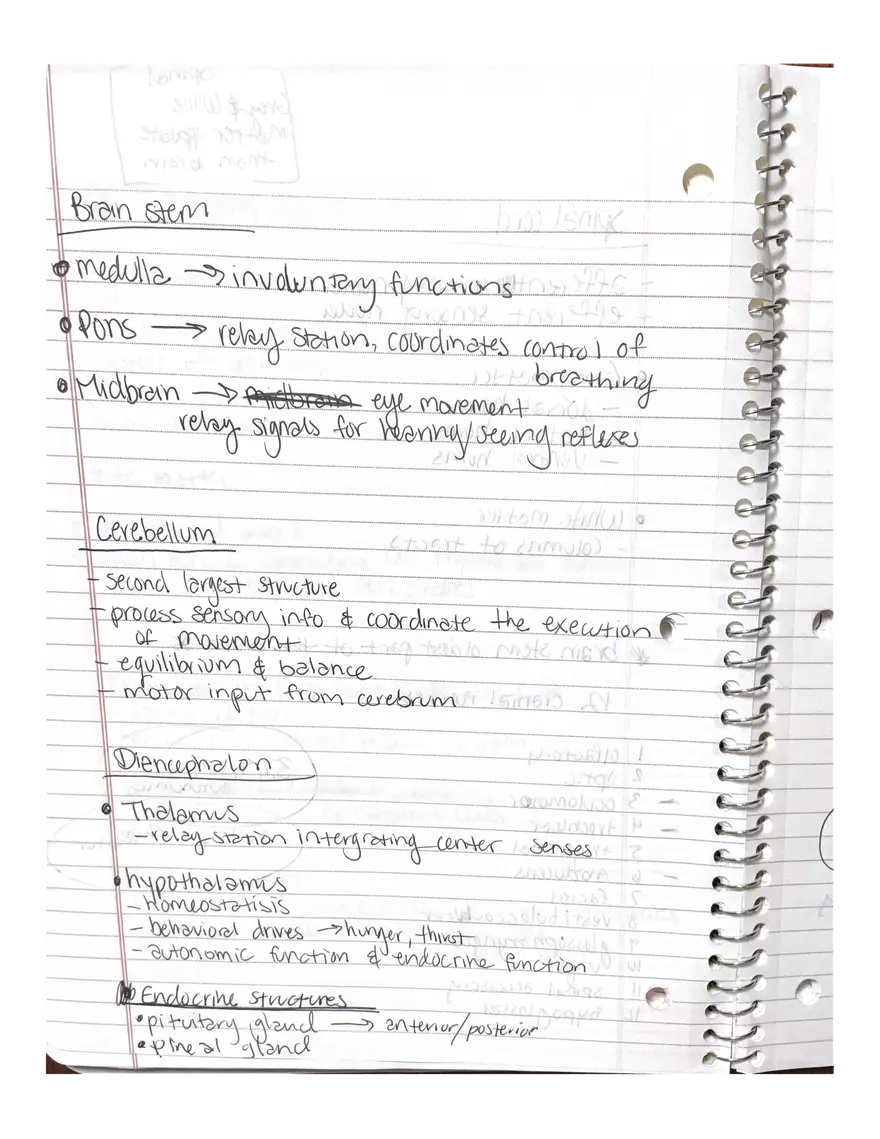 Brain stem
• medulla → involuntary functions
• Pons → relay station, coordinates control of
breathing
• Midbrain → midbrain eye movement
relay signals for hearing/seeing reflexes
Cerebellum
- second largest structure
- process sensory info & coordinate the execution
of movement
- equilibrium & balance
- motor input from cerebrum
Diencephalon
• Thalamus
- relay station intergrating center senses
• hypothalamus
- Homeostatisis
- behavioral drives → hunger, thirst
- autonomic function & endocrine function
Endocrine structures
• pituitary gland → anterior/posterior
• pineal gland